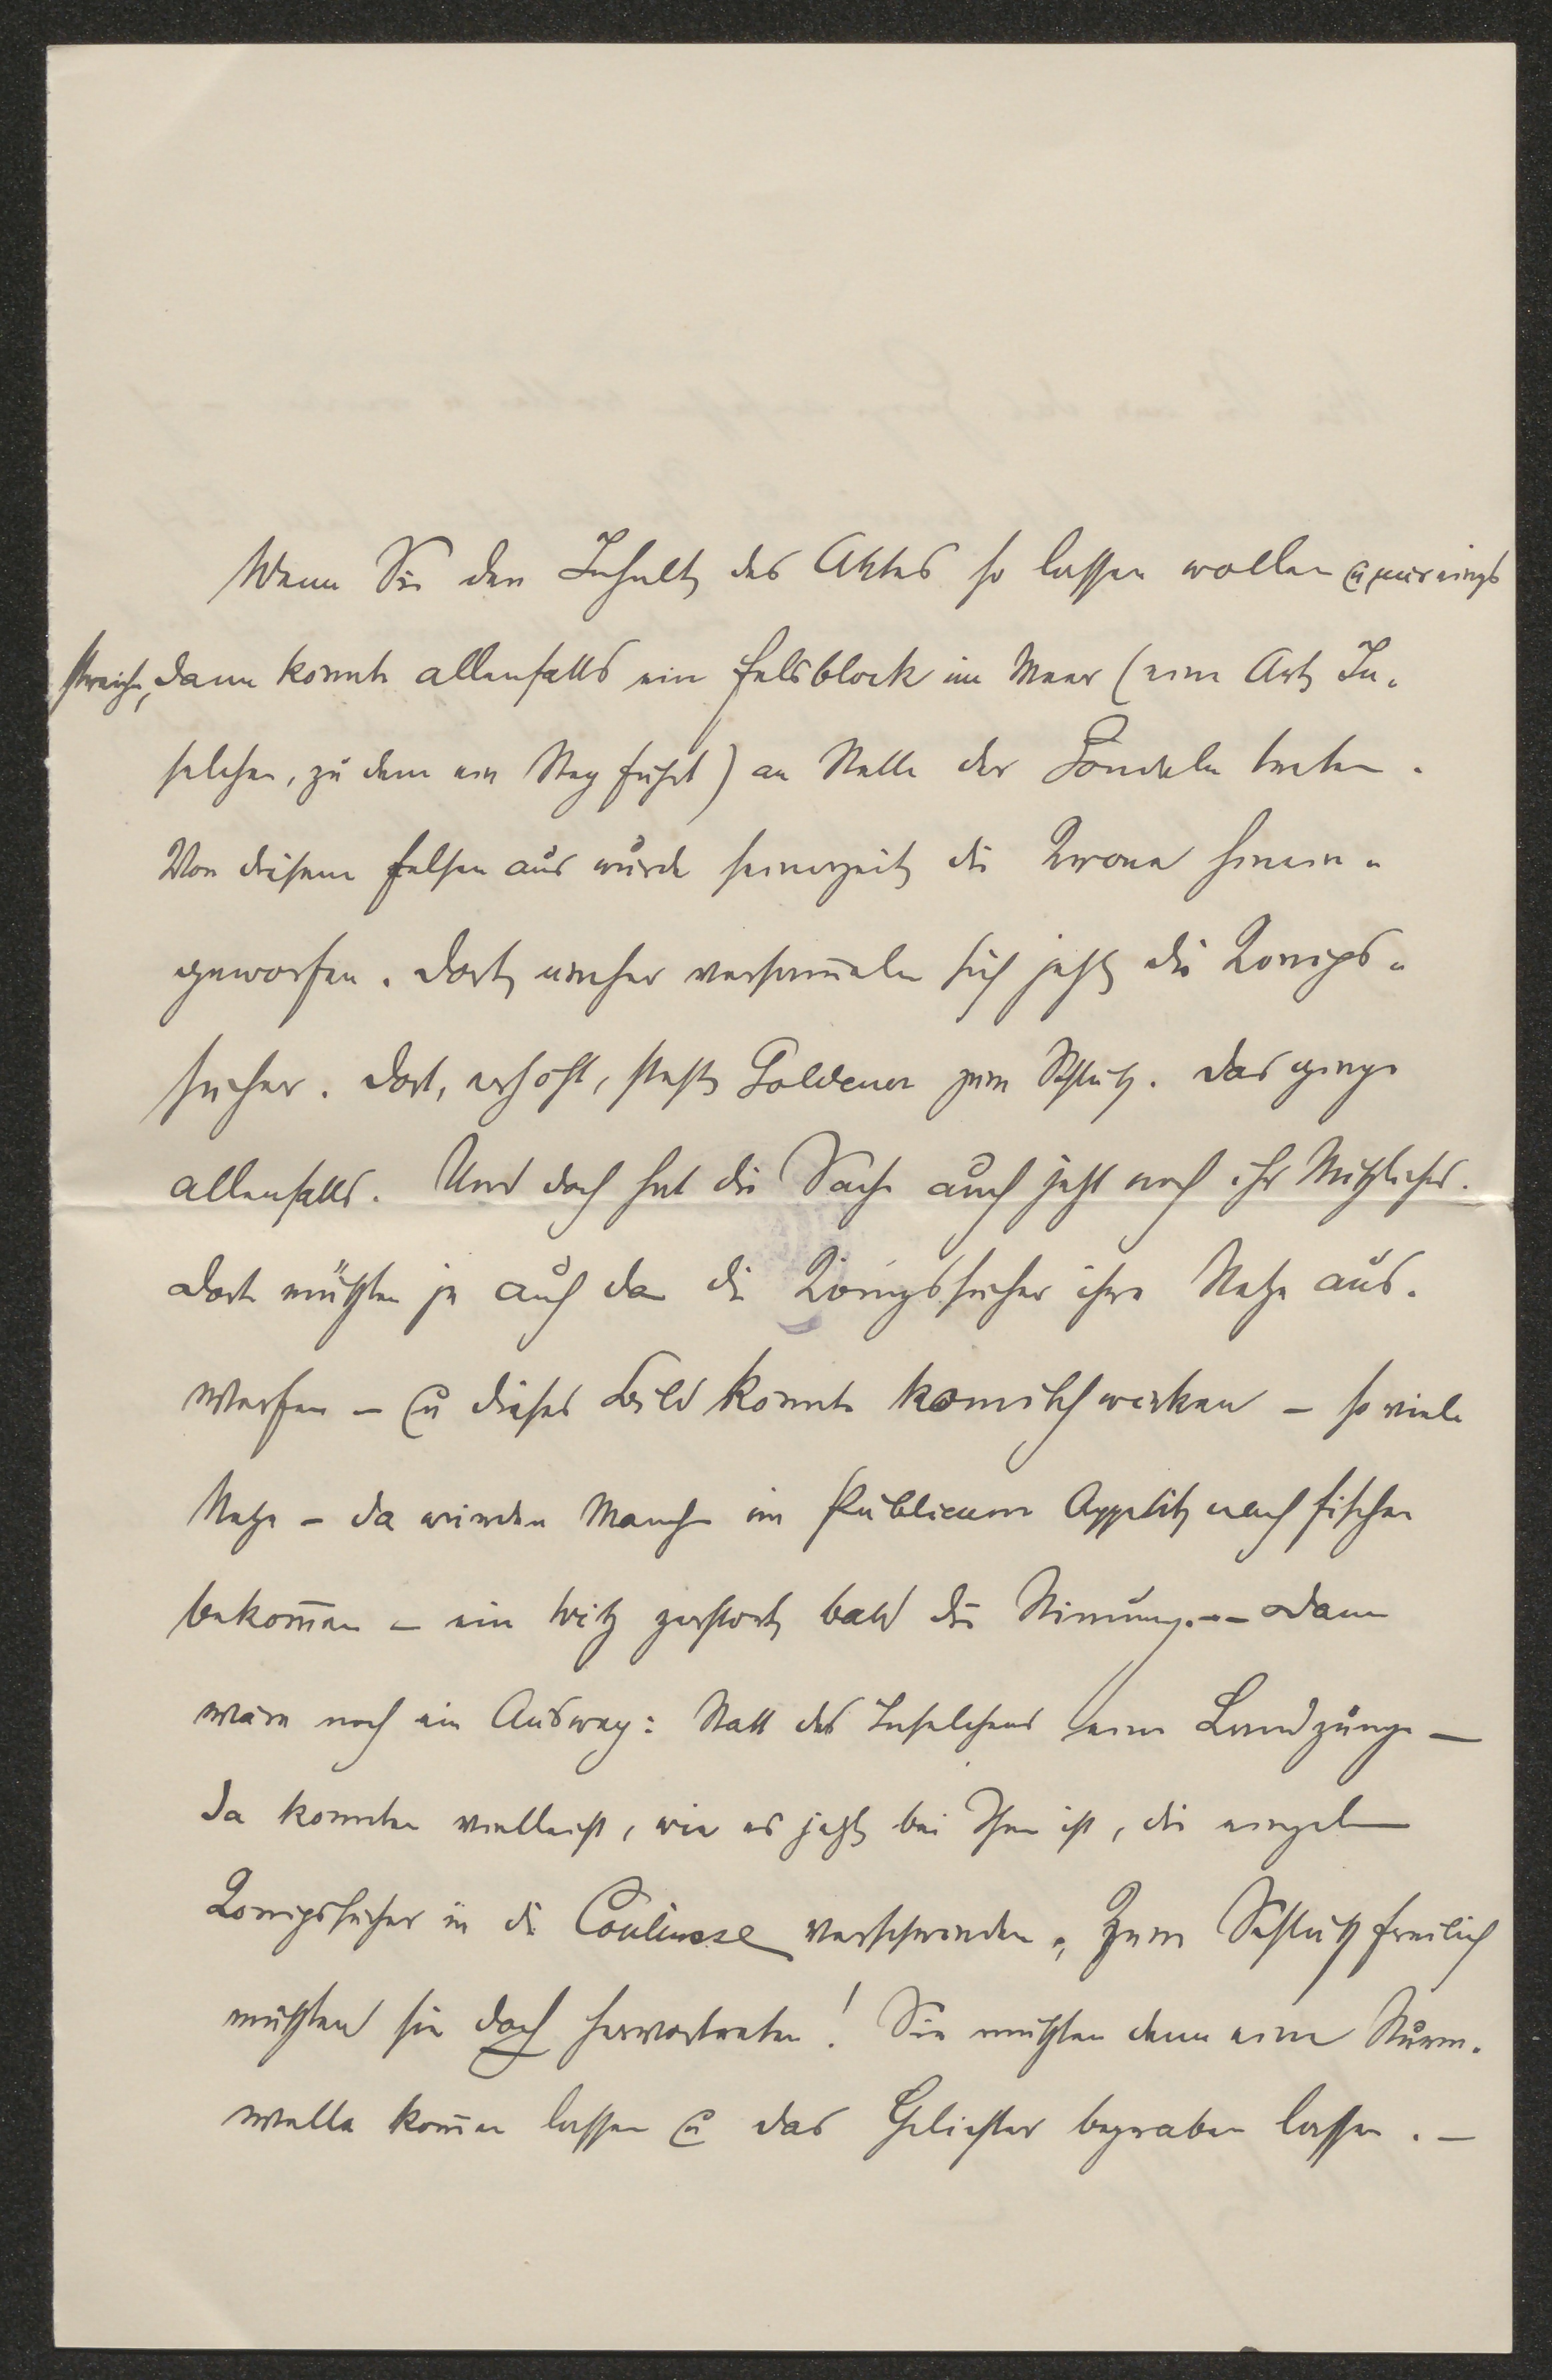 Wenn Sie den Inhalt des Aktes so lassen wollen u. nur einiges
streichen, dann könnte allenfalls ein Felsblock im Meer (eine Art In-
selchen, zu dem ein Steg führt) an Stelle der Gondeln treten.
Von diesem Felsen aus wurde seinerzeit die Krone hinein-
geworfen. Dort umher versam̅eln sich jetzt die Königs-
sucher. Dort, erhöht, steht Goldener zum Schluß. Das ginge
allenfalls. Und doch hat die Sache auch jetzt noch ihr Mißliches.
Dort müßten ja auch da die Königssucher ihre Netze aus-
werfen – u. dieses Bild könnte komisch wirken – so viele
Netze – da würden Manche im Publicum Appetit nach Fischen
bekom̅en – ein Witz zerstört bald die Stim̅ung. –– Dann
wäre noch ein Ausweg: Statt des Inselchens eine Landzunge –
da könnten vielleicht, wie es jetzt bei Ihnen ist, die einzelnen
Königssucher in die Coulisse verschwinden. Zum Schluß freilich
müßten sie doch hervortreten! Sie müßten denn eine Sturm-
welle kom̅en lassen u. das Gelichter begraben lassen. –